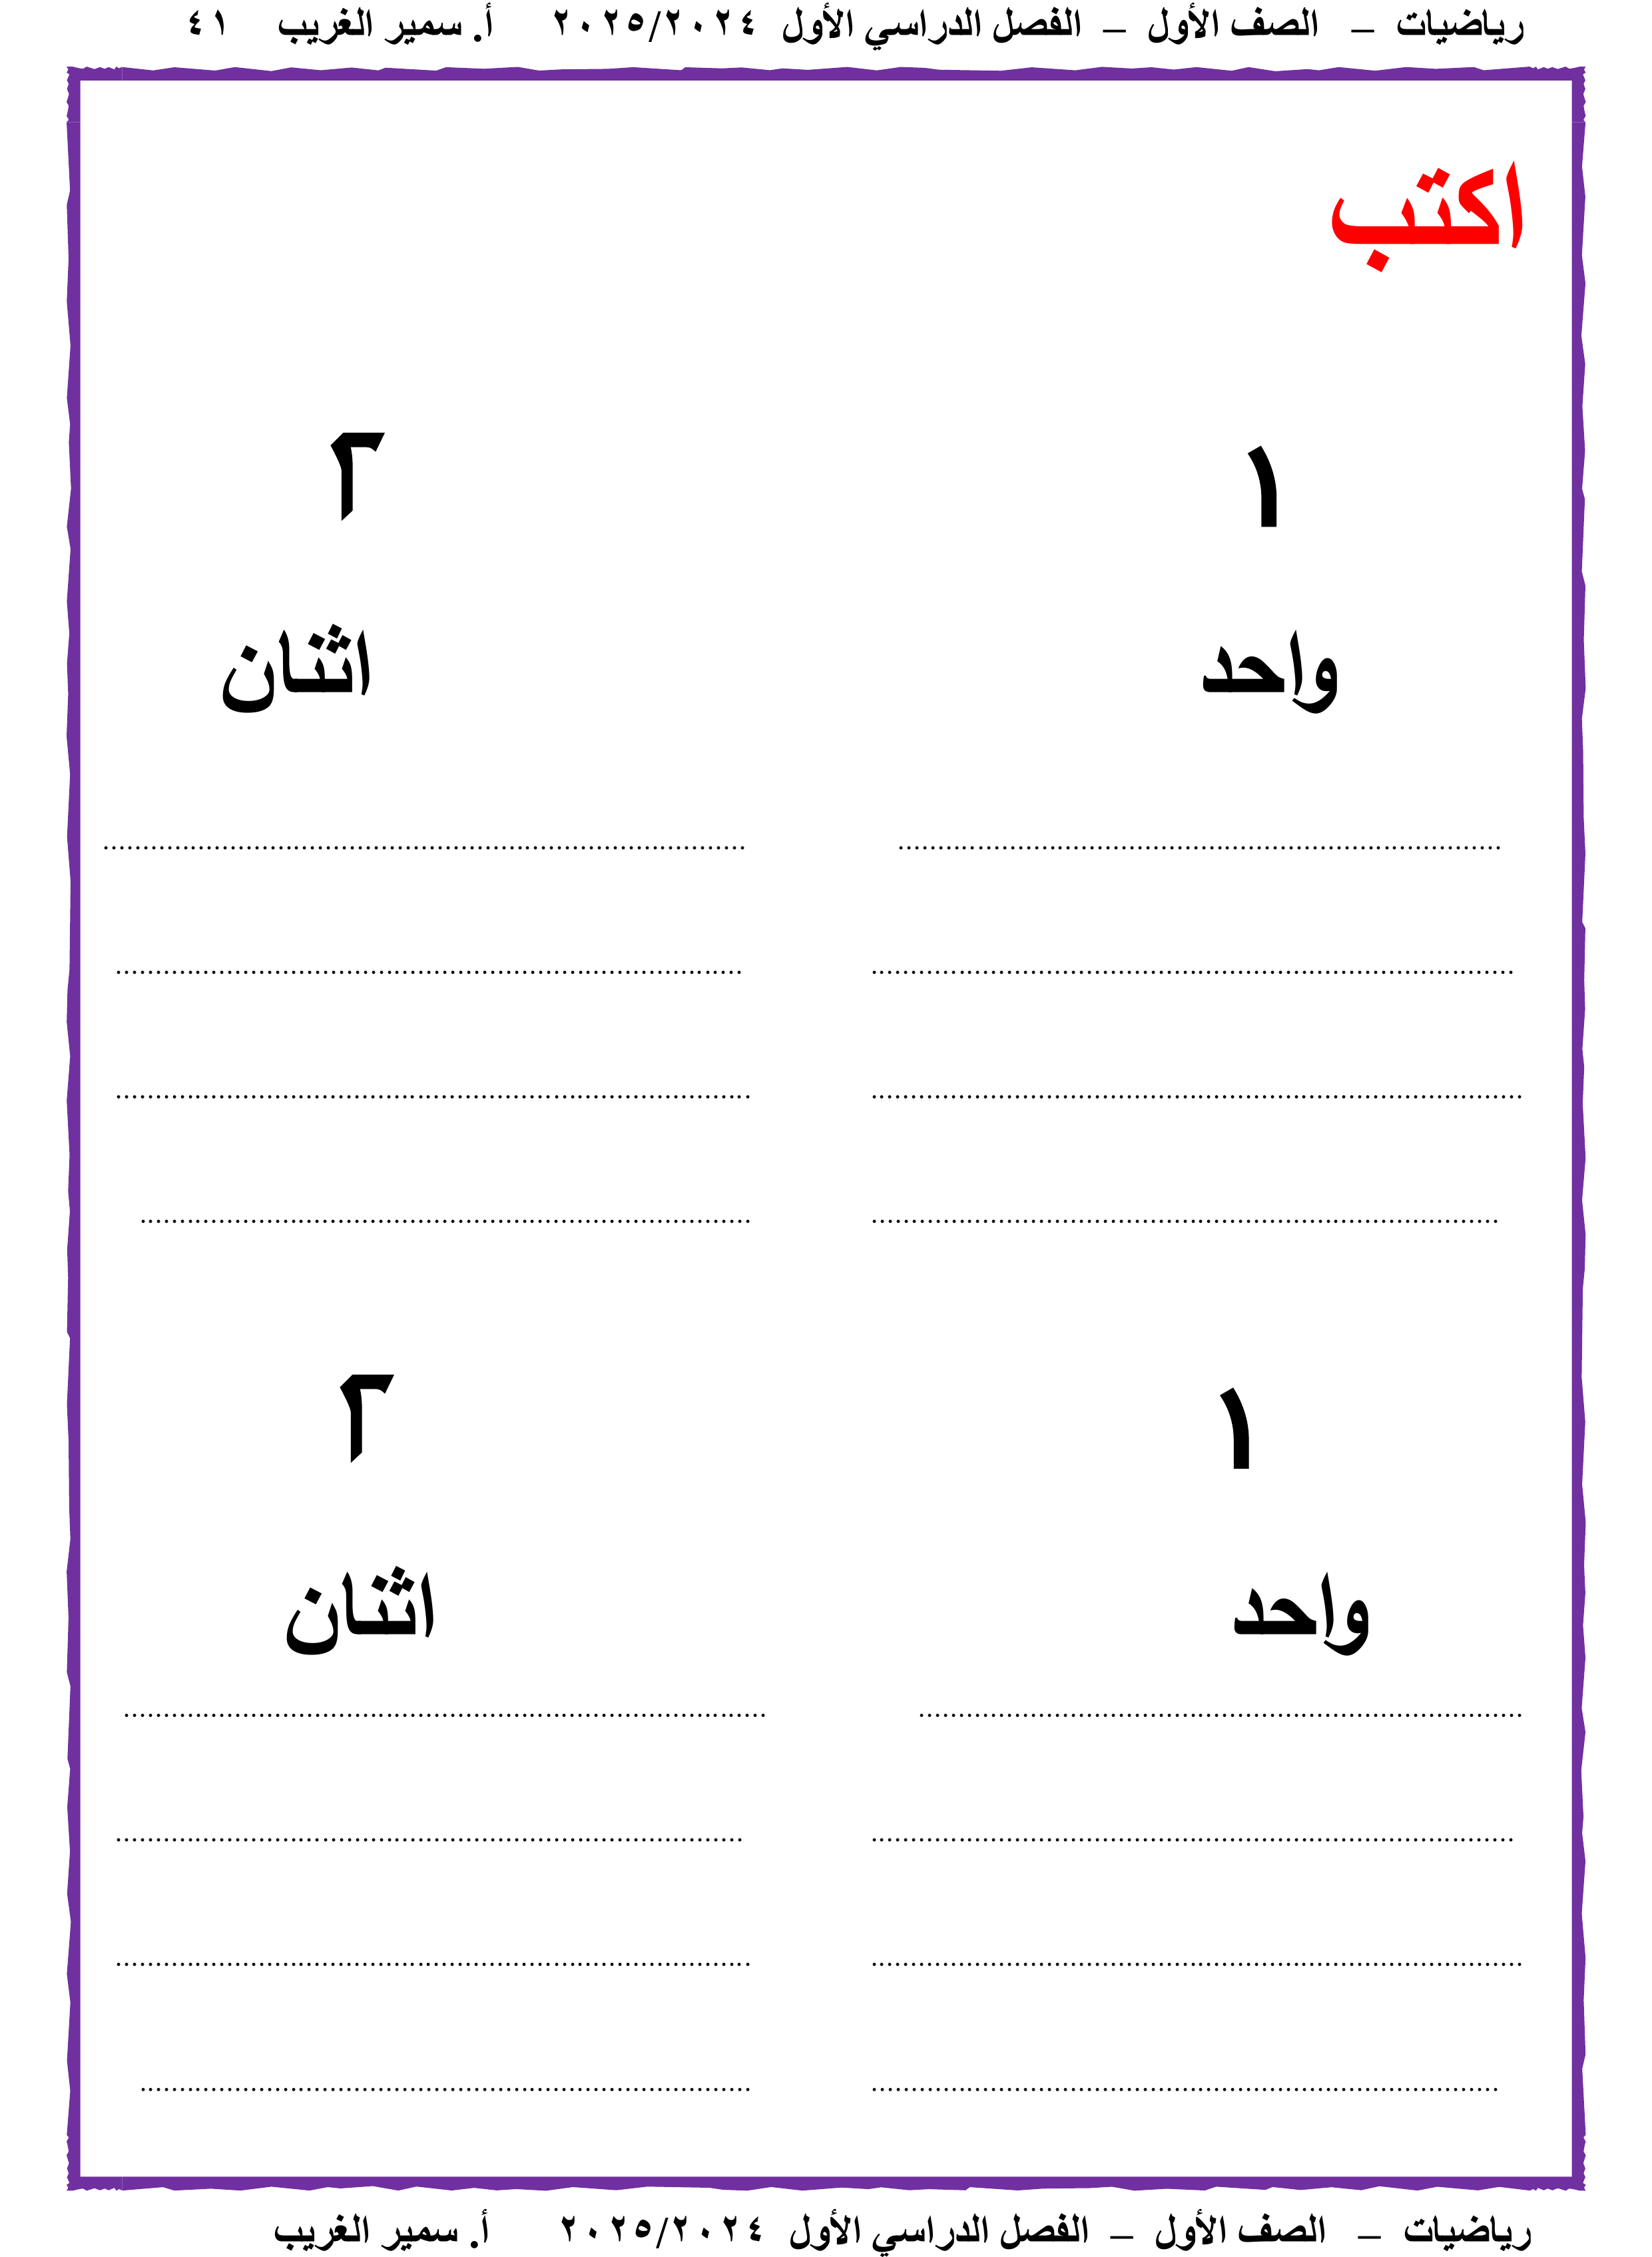 رياضيات – الصف الأول – الفصل الدراسي الأول ٢٠٢٥/٢٠٢٤ أ. سمير الغريب ٤١
اكتب
١ ٢
واحد اثنان
........................................ ........................................
........................................ ........................................
........................................ ........................................
........................................ ........................................
١ ٢
واحد اثنان
........................................ ........................................
........................................ ........................................
........................................ ........................................
........................................ ........................................
رياضيات – الصف الأول – الفصل الدراسي الأول ٢٠٢٥/٢٠٢٤ أ. سمير الغريب